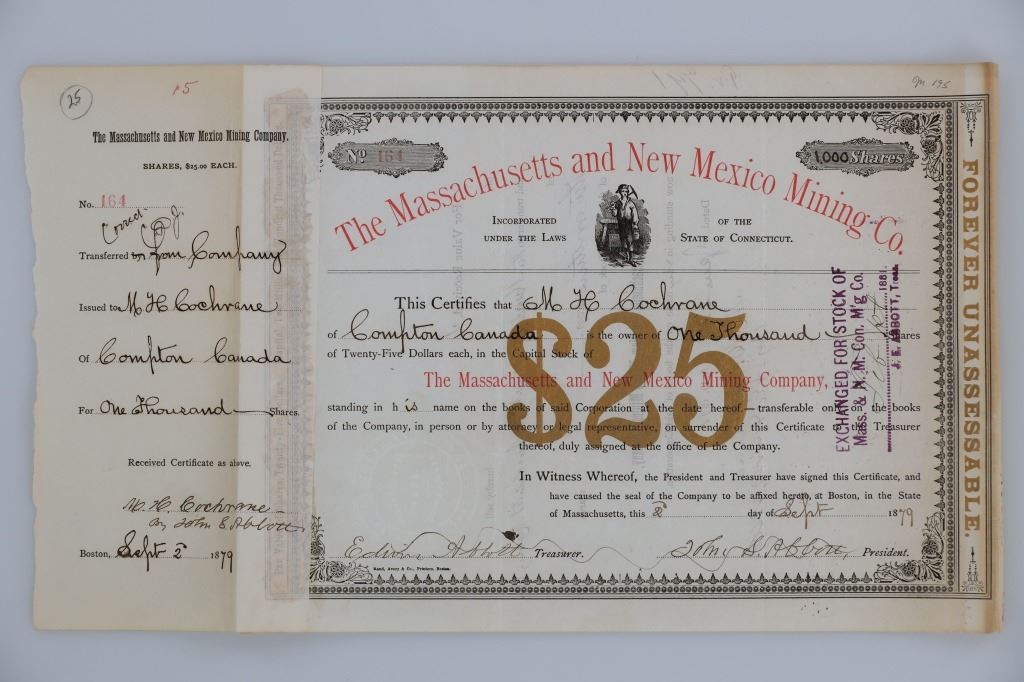 25
15
The Massachusetts and New Mexico Mining Company.
SHARES, $25.00 EACH.
No. 164
Correct
Transferred from Company
Issued to M H Cochrane
Of Compton Canada
For One Thousand Shares.
Received Certificate as above.
M. H. Cochrane
By John E Abbott
Boston, Sept 2 1879
M 195
No 164
1,000 Shares
The Massachusetts and New Mexico Mining Co.
INCORPORATED UNDER THE LAWS
OF THE STATE OF CONNECTICUT.
This Certifies that M H Cochrane
of Compton Canada is the owner of One Thousand Shares
of Twenty-Five Dollars each, in the Capital Stock of
$25
The Massachusetts and New Mexico Mining Company,
standing in his name on the books of said Corporation at the date hereof.—transferable only on the books
of the Company, in person or by attorney or legal representative, on surrender of this Certificate to the Treasurer
thereof, duly assigned at the office of the Company.
In Witness Whereof, the President and Treasurer have signed this Certificate, and
have caused the seal of the Company to be affixed hereto, at Boston, in the State
of Massachusetts, this 2 day of Sept 1879
Edwin Abbott Treasurer. John S. Abbott, President.
Rand, Avery & Co., Printers, Boston.
EXCHANGED FOR STOCK OF
Mass. & N. M. Con. M'g Co.
1881.
J. E. ABBOTT, Treas.
FOREVER UNASSESSABLE.